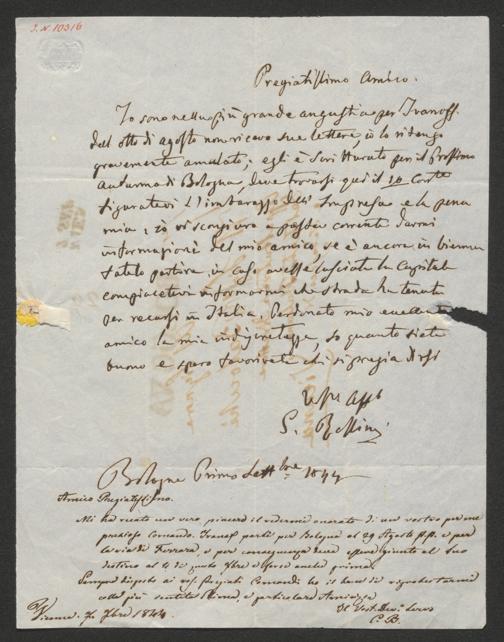 J.N. 10316
Pregiatissimo Amico.
Io sono nella più grande angustia per Ivanoff.
Dal otto di agosto non ricevo sue lettere, io lo ritengo
gravemente amalato; egli è Scritturato per il Prossimo
Autunno di Bologna, deve trovarsi quì il 10 Corte
figuratevi l'imbarazzo dell' Impresa e la pena
mia; io vi scongiuro a posta corrente darmi
informazioni del mio amico, se è ancora in Vienna
fatelo partire, in caso avesse lasciata la Capitale
compiacetevi informarmi che strada ha tenuta
per recarsi in Italia. Perdonate mio
amico la mia indiscretezza, so quanto siete
buono e spero favorirete chi si pregia dirsi
Vostro Affo
G. Rossini
Bologna Primo Settbre 1844
Amico Pregiatissimo.
Mi ha recato un vero piacere il vedermi onorato di un vostro
pregiato Comando. Ivanoff partì per Bologna al 29 Agosto p.p. e per
la via di Ferrara, e per conseguenza deve essere giunto al suo
destino al di 7bre o forse anche prima.
Sempre disposto ai vostri Pregiati Comandi ho il bene di
colla più sentita Stima, e particolare Amicizia
Il Vost. Devo Servo
C.B.
Vienna 7 7bre 1844